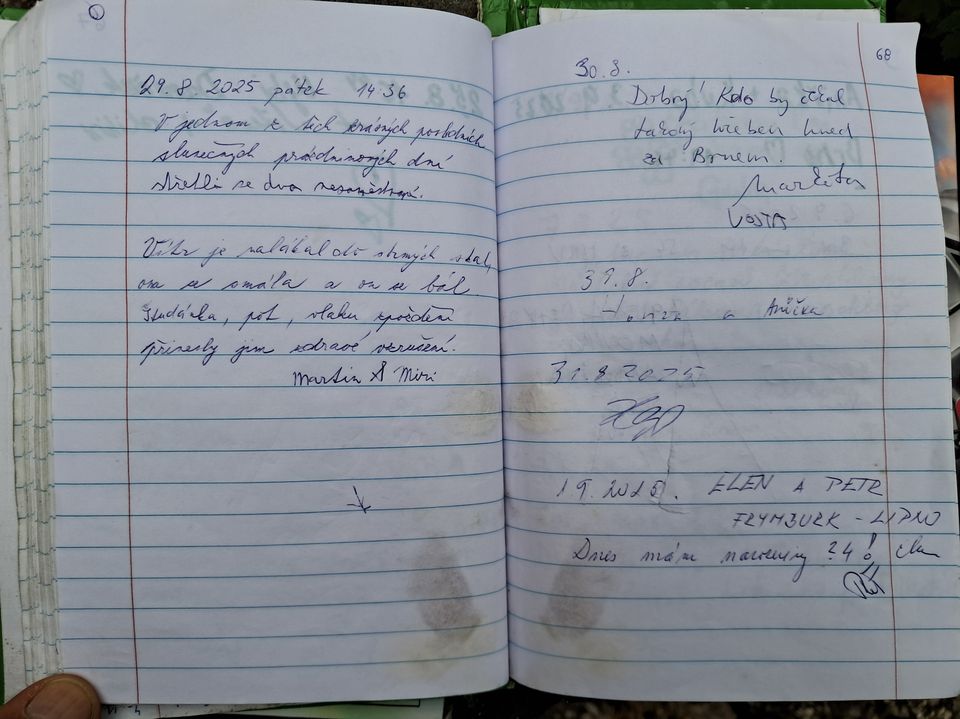 29.8.2025 pátek 14:36
V jednom z těch krásných posledních
slunečných prázdninových dní
střetli se dva nesmrtelní.
Vítr je nalákal do strmých skal,
ona se smála a on se bál.
Studánka, pot, vlaku zpoždění
přinesly jim zdravé vzrušení.
Martin & Miri
68
30.8.
Dobrý! Kdo by čekal
takový hřeben hned
za Brnem.
Markéta
VOJTA
31.8.
Honza a Anička
31.8 2025
1.9.2025. ELEN A PETR
FRYMBURK - LIPNO
Dnes mám narozeniny 24!